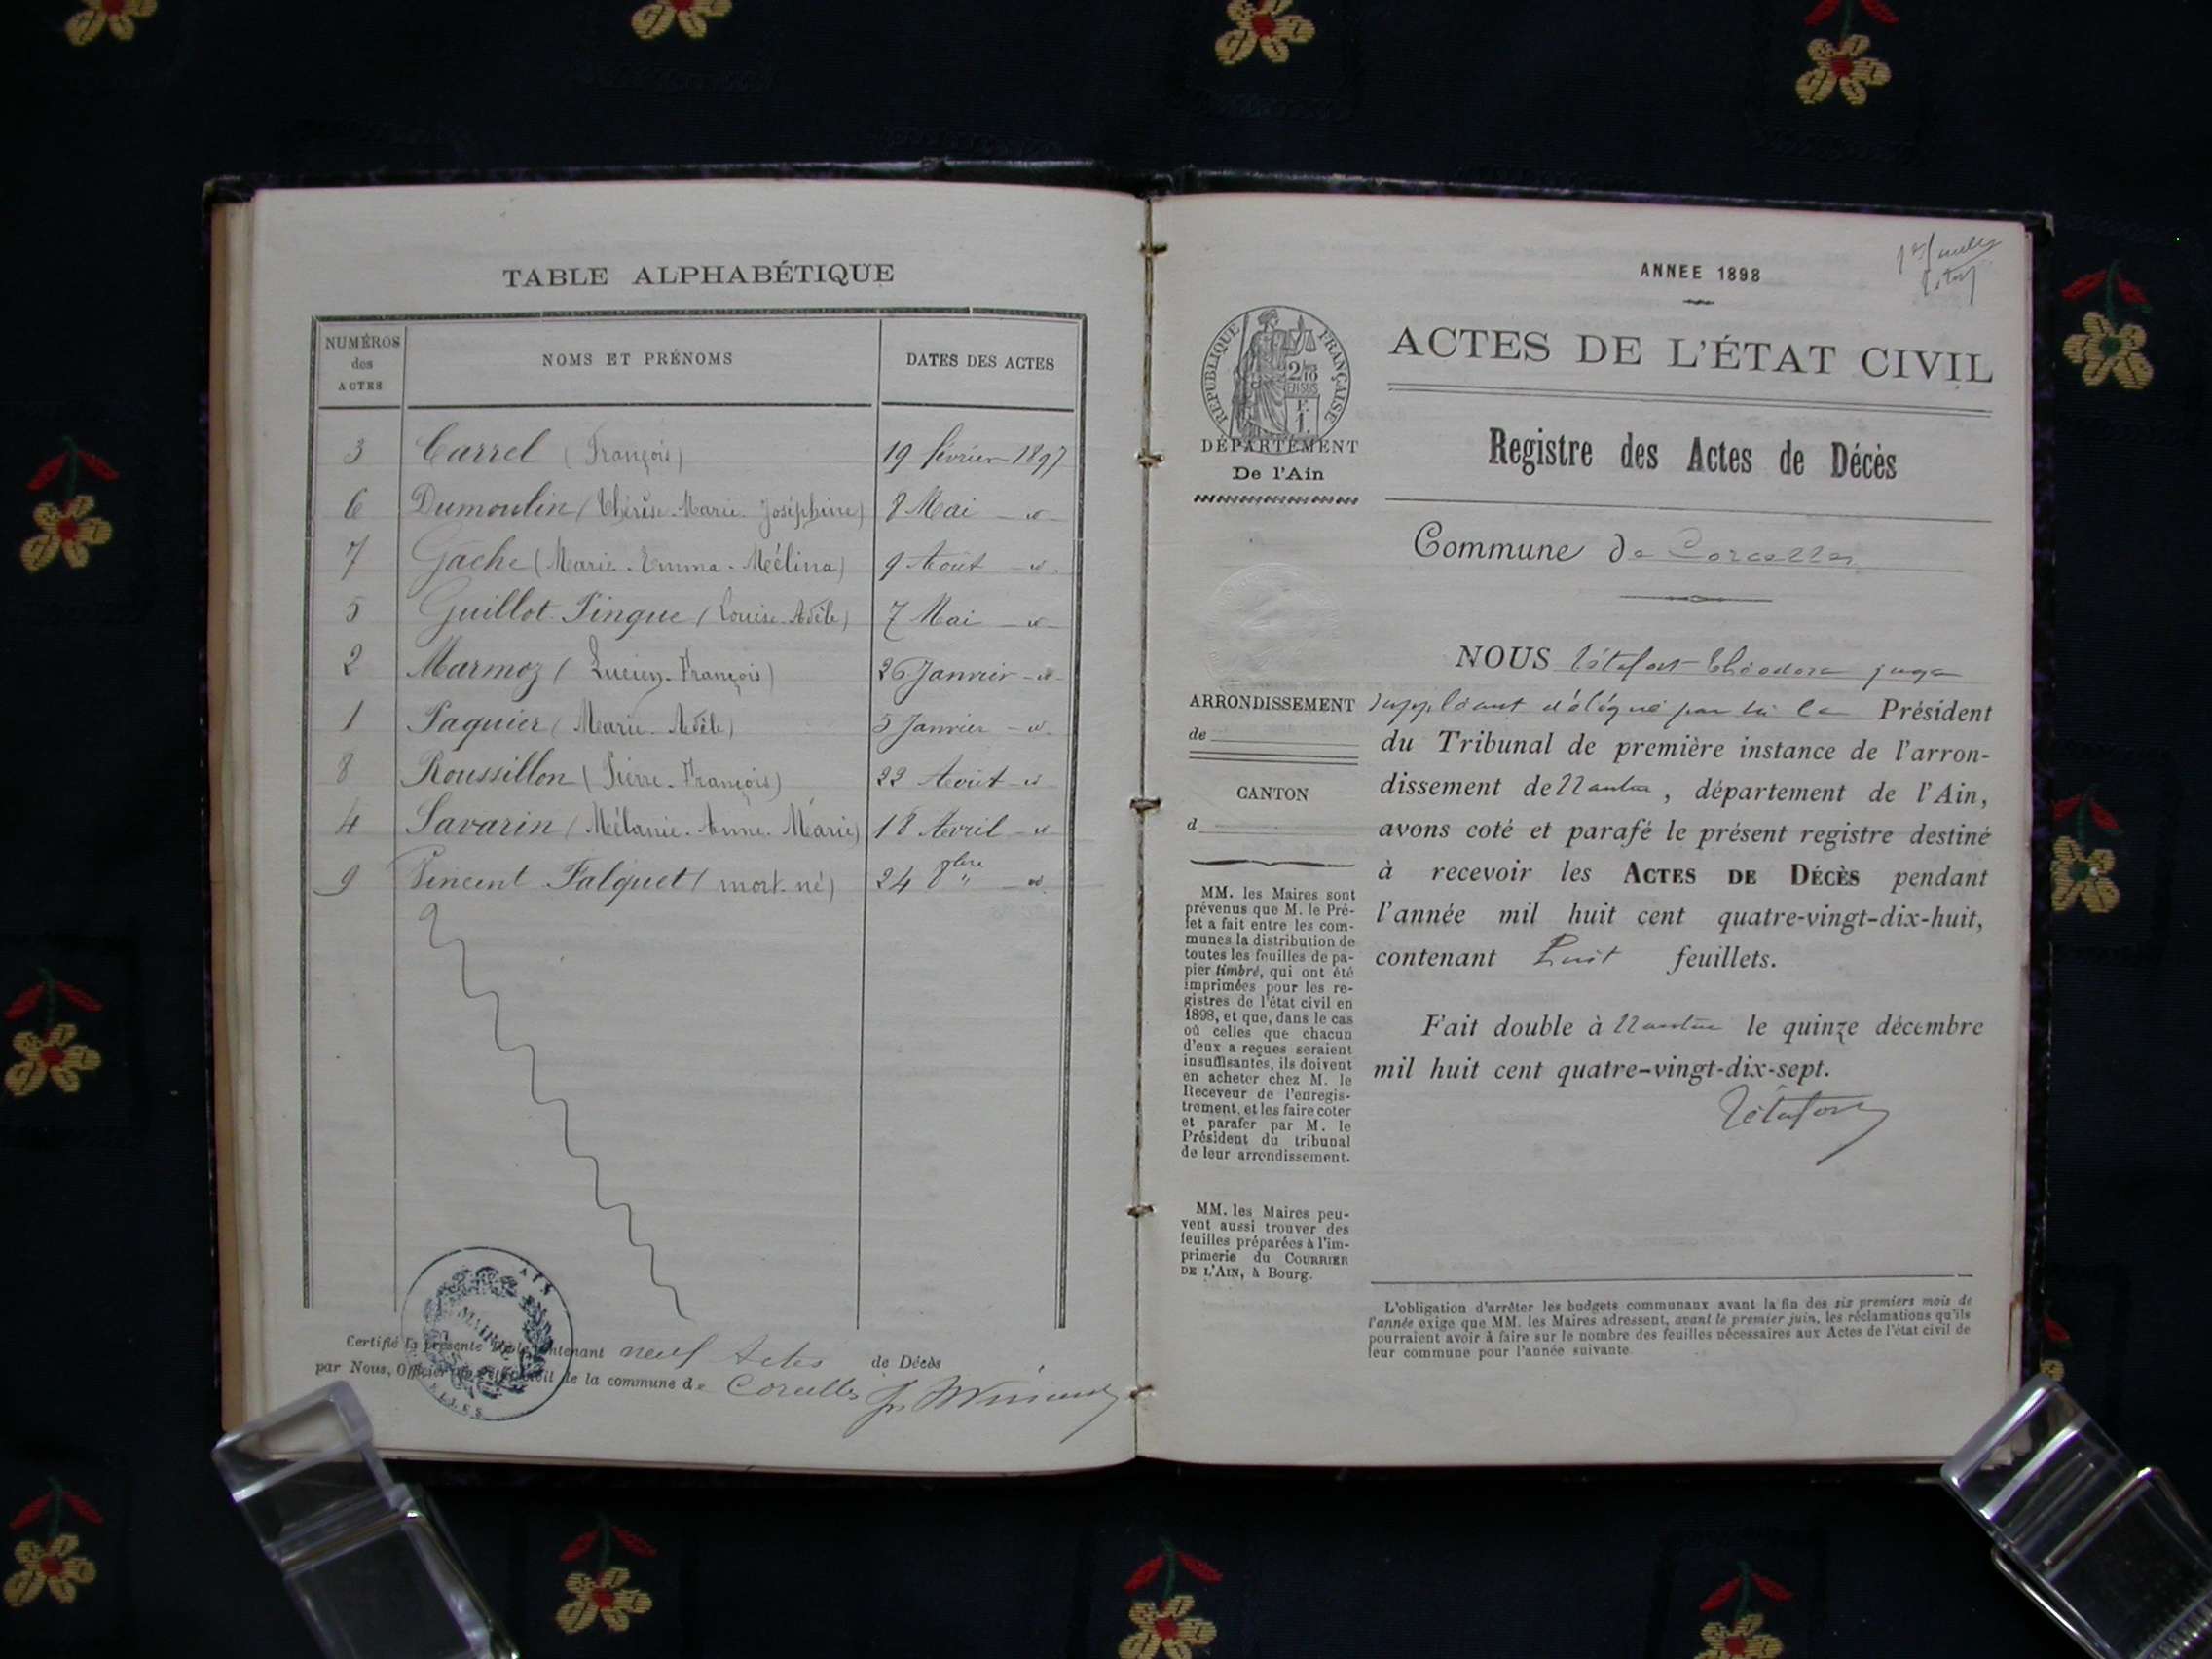 TABLE ALPHABÉTIQUE
NUMÉROS des ACTES
NOMS ET PRÉNOMS
DATES DES ACTES
3 Carrel (François) 19 février 1897
6 Dumoulin (Thérèse-Marie-Joséphine) 8 Mai — d° —
7 Gache (Marie-Emma-Mélina) 9 Août — d° —
5 Guillot-Pingue (Louise-Adèle) 7 Mai — d° —
2 Marmoz (Lucien-François) 26 Janvier — d° —
1 Paquier (Marie-Adèle) 5 Janvier — d° —
8 Roussillon (Pierre-François) 22 Août — d°
4 Savarin (Mélanie-Anne-Marie) 18 Avril — d°
9 Vincent-Falquet (mort-né) 24 8bre — d°
Certifié la présente Table contenant neuf Actes de Décès
par Nous, Officier de l'état civil de la commune de Corcelles
AIN
MAIRIE
ANNEE 1898
RÉPUBLIQUE FRANÇAISE
2/10
EN SUS
F.
1.
DÉPARTEMENT
De l'Ain
ACTES DE L'ÉTAT CIVIL
Registre des Actes de Décès
Commune de Corcelles
ARRONDISSEMENT
de
CANTON
d
MM. les Maires sont
prévenus que M. le Pré-
fet a fait entre les com-
munes la distribution de
toutes les feuilles de pa-
pier timbré, qui ont été
imprimées pour les re-
gistres de l'état civil en
1898, et que, dans le cas
où celles que chacun
d'eux a reçues seraient
insuffisantes, ils doivent
en acheter chez M. le
Receveur de l'enregis-
trement, et les faire coter
et parafer par M. le
Président du tribunal
de leur arrondissement.
MM. les Maires peu-
vent aussi trouver des
feuilles préparées à l'im-
primerie du COURRIER
DE L'AIN, à Bourg.
NOUS Tétafort Théodore juge
suppléant délégué par M. le Président
du Tribunal de première instance de l'arron-
dissement de Nantua, département de l'Ain,
avons coté et parafé le présent registre destiné
à recevoir les ACTES DE DÉCÈS pendant
l'année mil huit cent quatre-vingt-dix-huit,
contenant huit feuillets.
Fait double à Nantua le quinze décembre
mil huit cent quatre-vingt-dix-sept.
Tétafort
L'obligation d'arrêter les budgets communaux avant la fin des six premiers mois de
l'année exige que MM. les Maires adressent, avant le premier juin, les réclamations qu'ils
pourraient avoir à faire sur le nombre des feuilles nécessaires aux Actes de l'état civil de
leur commune pour l'année suivante